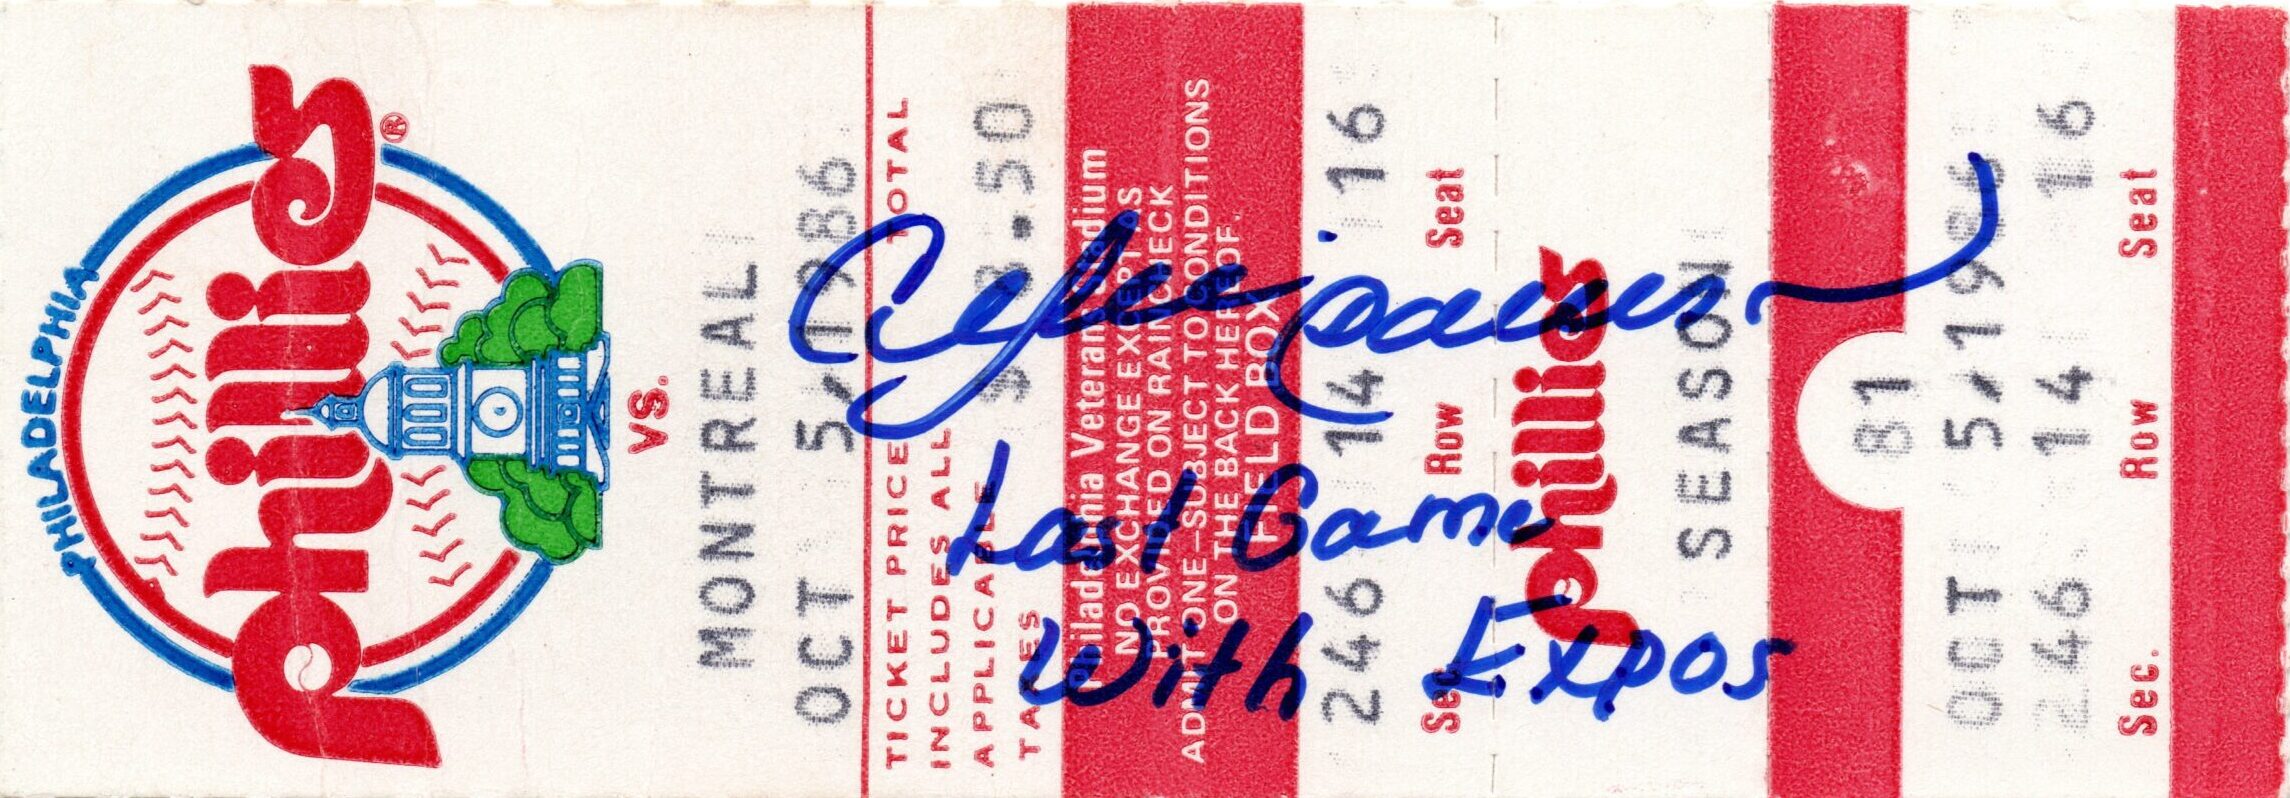 PHILADELPHIA
Phillies®
VS.
MONTREAL
OCT 5,1986
TICKET PRICE TOTAL
INCLUDES ALL
APPLICABLE
TAXES
$ 8.50
Philadelphia Veterans Stadium
NO EXCHANGE EXCEPT AS
PROVIDED ON RAIN CHECK
ADMIT ONE-SUBJECT TO CONDITIONS
ON THE BACK HEREOF.
FIELD BOX
246 14 16
Sec. Row Seat
Last Game
With Expos
Phillies
SEASON
81
OCT 5,1986
246 14 16
Sec. Row Seat